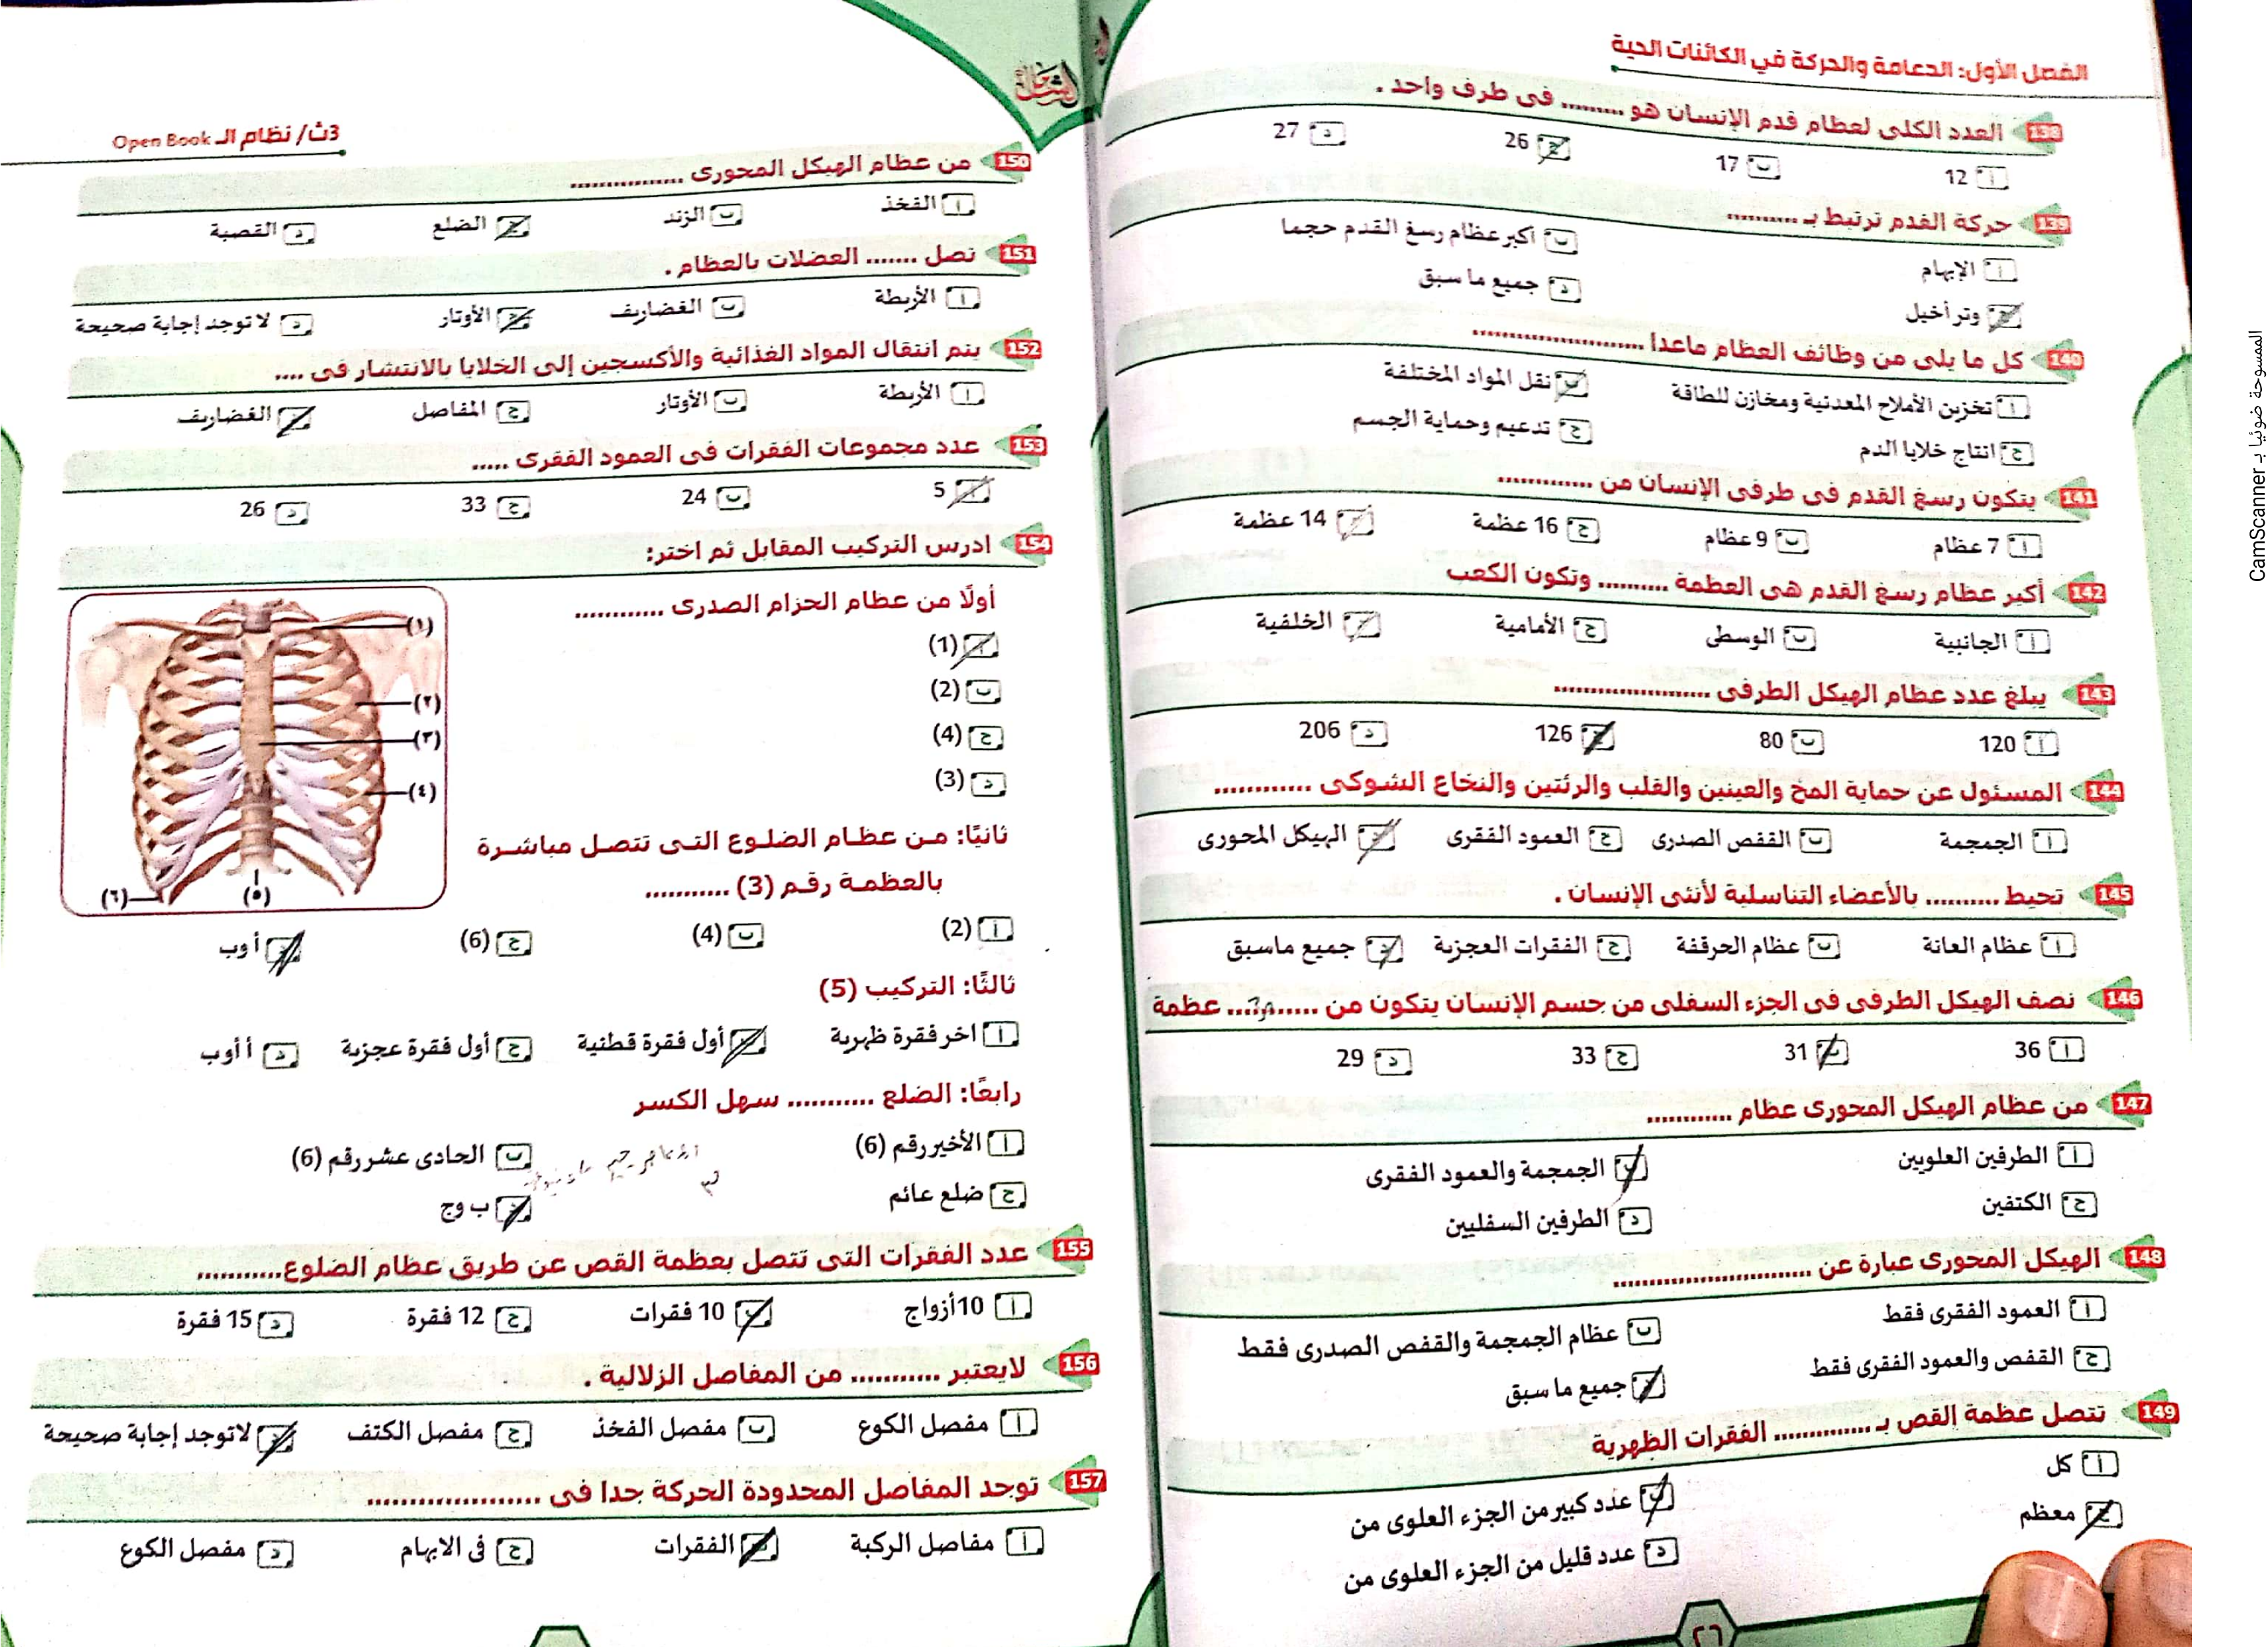 الفصل الأول: الدعامة والحركة في الكائنات الحية
138 العدد الكلى لعظام قدم الإنسان هو ......... فى طرف واحد .
أ 12 ب 17 ج 26 د 27
139 حركة القدم ترتبط بـ ..........
أ الإبهام ب اكبر عظام رسغ القدم حجما
ج وتر أخيل د جميع ما سبق
140 كل ما يلى من وظائف العظام ماعدا ......................
أ تخزين الأملاح المعدنية ومخازن للطاقة ب نقل المواد المختلفة
ج انتاج خلايا الدم ج تدعيم وحماية الجسم
141 يتكون رسغ القدم فى طرفى الإنسان من .............
أ 7 عظام ب 9 عظام ج 16 عظمة د 14 عظمة
142 أكبر عظام رسغ القدم هى العظمة .......... وتكون الكعب
أ الجانبية ب الوسطى ج الأمامية د الخلفية
143 يبلغ عدد عظام الهيكل الطرفى ....................
أ 120 ب 80 ج 126 د 206
144 المسئول عن حماية المخ والعينين والقلب والرئتين والنخاع الشوكى ............
أ الجمجمة ب القفص الصدرى ج العمود الفقرى د الهيكل المحورى
145 تحيط .......... بالأعضاء التناسلية لأنثى الإنسان .
أ عظام العانة ب عظام الحرقفة ج الفقرات العجزية د جميع ماسبق
146 نصف الهيكل الطرفى فى الجزء السفلى من جسم الإنسان يتكون من ............ عظمة
أ 36 ب 31 ج 33 د 29
147 من عظام الهيكل المحورى عظام ...........
أ الطرفين العلويين ب الجمجمة والعمود الفقرى
ج الكتفين د الطرفين السفليين
148 الهيكل المحورى عبارة عن .........................
أ العمود الفقرى فقط ب عظام الجمجمة والقفص الصدرى فقط
ج القفص والعمود الفقرى فقط د جميع ما سبق
149 تتصل عظمة القص بـ ............. الفقرات الظهرية
أ كل ب عدد كبير من الجزء العلوى من
ج معظم د عدد قليل من الجزء العلوى من
٢٦
الشامل
3ث/ نظام الـ Open Book
150 من عظام الهيكل المحورى ................
أ الفخذ ب الزند ج الضلع د القصبة
151 تصل ....... العضلات بالعظام .
أ الأربطة ب الغضاريف ج الأوتار د لا توجد إجابة صحيحة
152 يتم انتقال المواد الغذائية والأكسجين إلى الخلايا بالانتشار فى ....
أ الأربطة ب الأوتار ج المفاصل د الغضاريف
153 عدد مجموعات الفقرات فى العمود الفقرى .....
أ 5 ب 24 ج 33 د 26
154 ادرس التركيب المقابل ثم اختر:
أولًا من عظام الحزام الصدرى ............
أ (1)
ب (2)
ج (4)
د (3)
(١)
(٢)
(٣)
(٤)
(٥)
(٦)
ثانيًا: من عظام الضلوع التى تتصل مباشرة
بالعظمة رقم (3) ...........
أ (2) ب (4) ج (6) د أ وب
ثالثًا: التركيب (5)
أ اخر فقرة ظهرية ب أول فقرة قطنية ج أول فقرة عجزية د أ أوب
رابعًا: الضلع ........... سهل الكسر
أ الأخير رقم (6) ب الحادى عشر رقم (6)
ج ضلع عائم د ب وج
155 عدد الفقرات التى تتصل بعظمة القص عن طريق عظام الضلوع...........
أ 10أزواج ب 10 فقرات ج 12 فقرة د 15 فقرة
156 لايعتبر ........... من المفاصل الزلالية .
أ مفصل الكوع ب مفصل الفخذ ج مفصل الكتف د لاتوجد إجابة صحيحة
157 توجد المفاصل المحدودة الحركة جدا فى .....................
أ مفاصل الركبة ب الفقرات ج فى الابهام د مفصل الكوع
الممسوحة ضوئيا بـ CamScanner